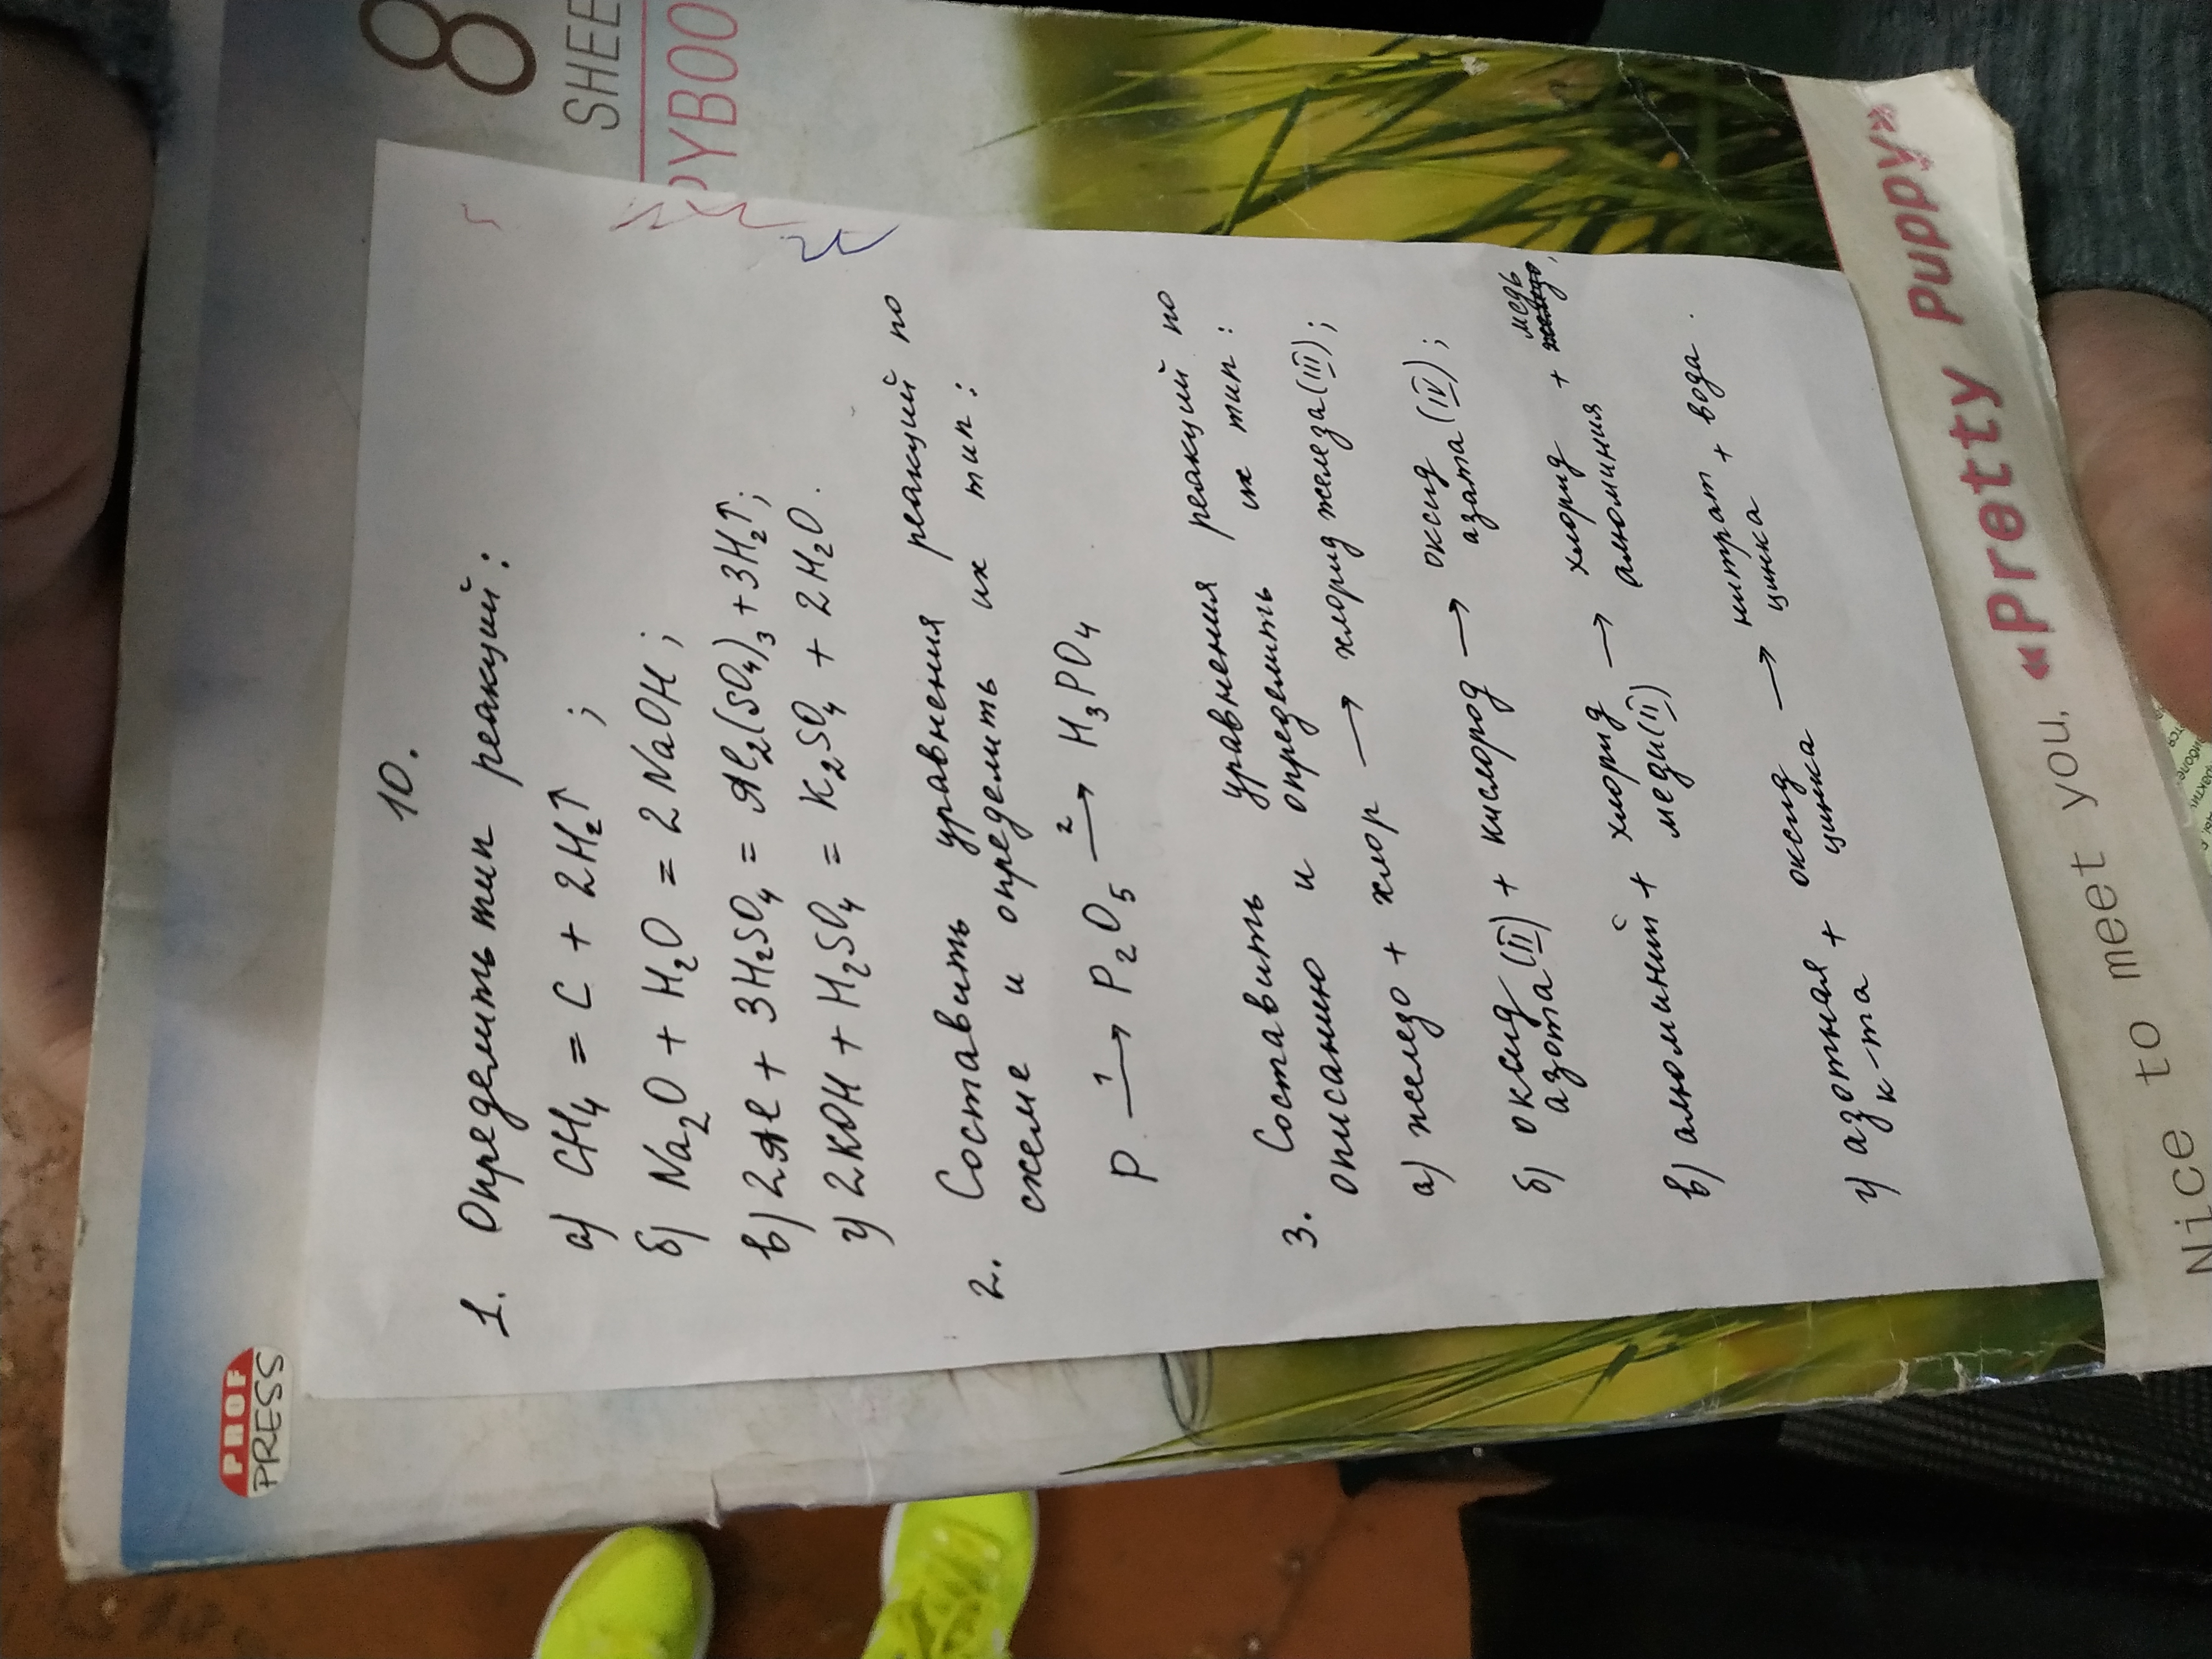 PROF
PRESS
8
SHEE
PYBOO
10.
1. Определить тип реакций:
а) CH₄ = C + 2H₂↑ ;
б) Na₂O + H₂O = 2NaOH ;
в) 2Al + 3H₂SO₄ = Al₂(SO₄)₃ + 3H₂↑;
г) 2KOH + H₂SO₄ = K₂SO₄ + 2H₂O.
2. Составить уравнения реакций по
схеме и определить их тип :
P —1→ P₂O₅ —2→ H₃PO₄
3. Составить уравнения реакций по
описанию и определить их тип :
а) железо + хлор → хлорид железа (III) ;
б) оксид азота (II) + кислород → оксид азата (IV) ;
в) алюминий + хлорид меди (II) → хлорид алюминия + медь,
г) азотная к-та + оксид цинка → нитрат цинка + вода .
Nice to meet you, «Pretty Puppy»